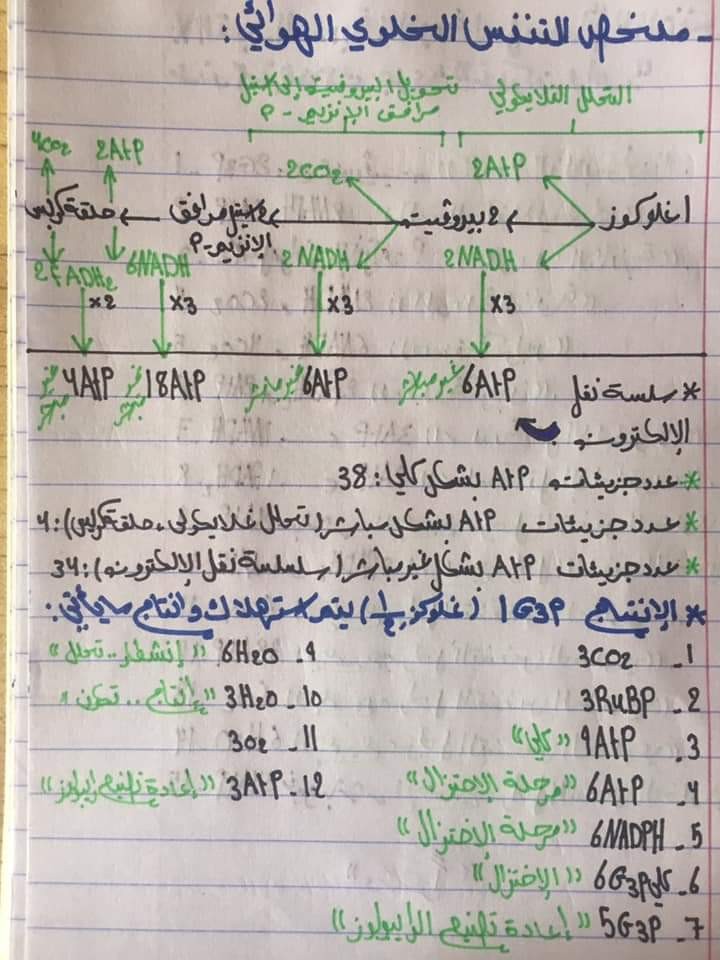 - ملخص التنفس الخلوي الهوائي:
التحلل الغلايكولي
تحويل البيروفيت إلى أستيل
مرافق الإنزيم - P
2ATP
2CO2
2ATP
4CO2
1 غلوكوز
2 بيروفيت
2 أستيل مرافق
الإنزيم-P
حلقة كربس
2NADH
2NADH
6NADH
2FADH2
x3
x3
x3
x2
* سلسة نقل
الإلكترونه
6ATP غير مباشر
6ATP غير مباشر
18ATP غير مباشر
4ATP غير مباشر
* عدد جزيئات ATP بشكل كلي: 38
* عدد جزيئات ATP بشكل مباشر (تحلل غلايكولي، حلقة كربس): 4
* عدد جزيئات ATP بشكل غير مباشر (سلسلة نقل الإلكترونه): 34
* الإنتاج 1G3P (غلوكوز 1/2) يتم استهلاك وانتاج ما يأتي:
1- 3CO2
2- 3RuBP
3- 9ATP "كلي"
4- 6ATP "مرحلة الإختزال"
5- 6NADPH "مرحلة الإختزال"
6- 6G3P كلي "الإختزال"
7- 5G3P "إعادة تصنيع الرايبولوز"
9- 6H2O "إنشطار.. تحلل"
10- 3H2O "إنتاج.. تكون"
11- 3O2
12- 3ATP "إعادة تصنيع رايبولوز"